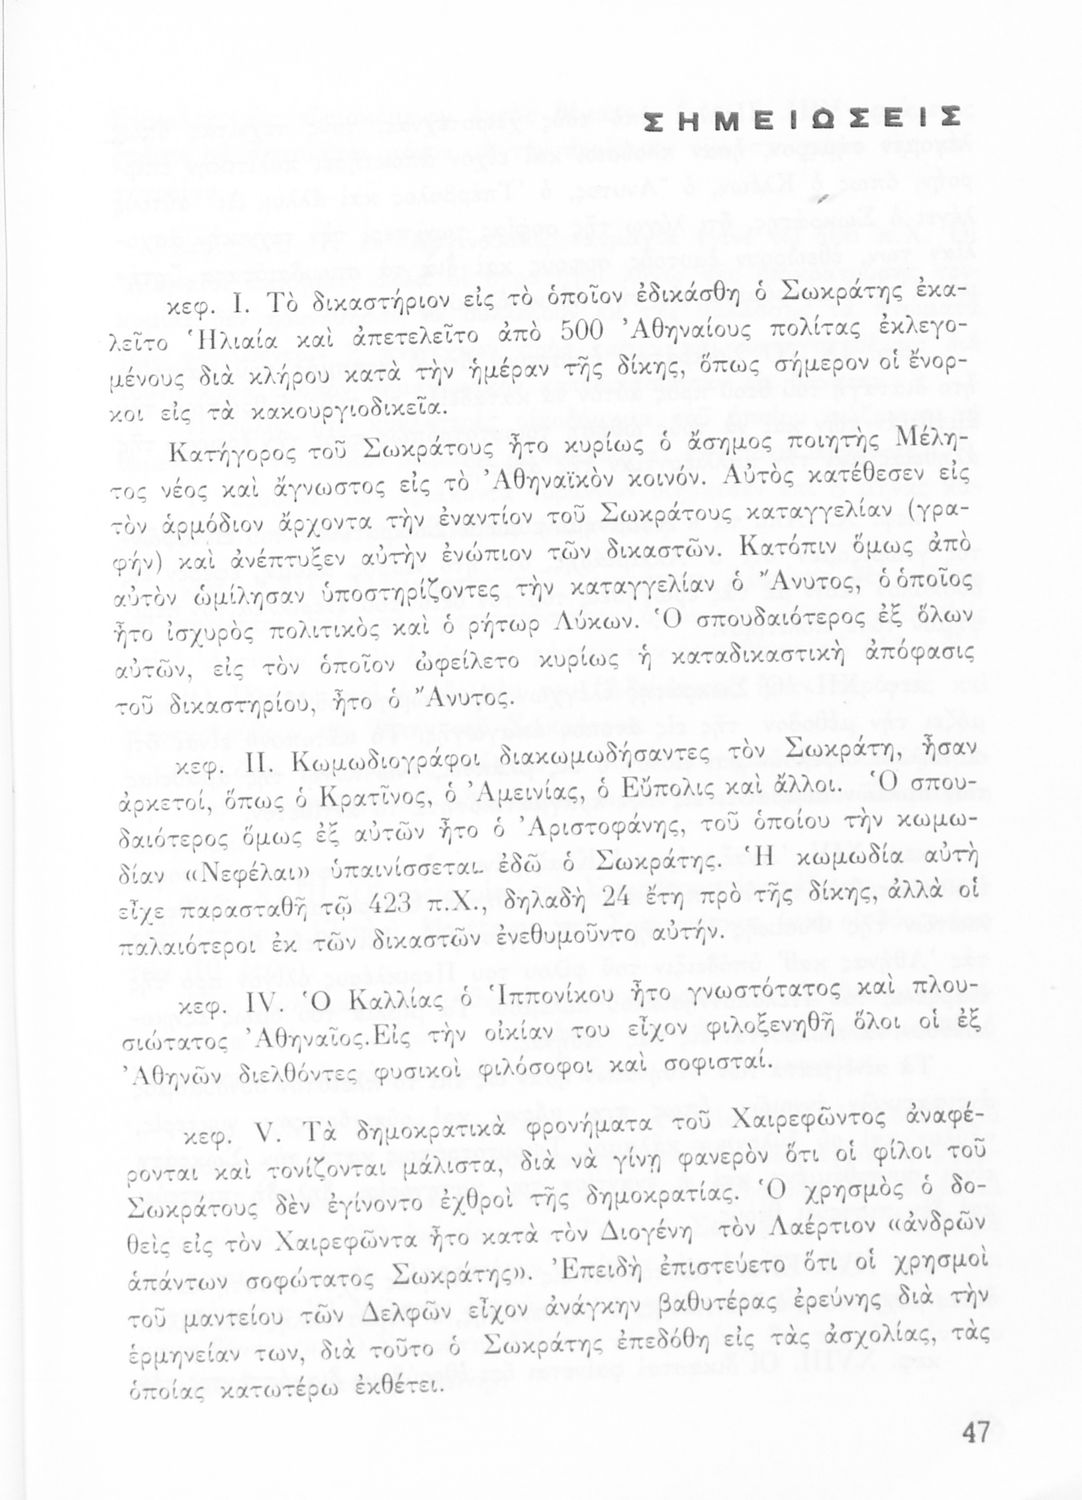 ΣΗΜΕΙΩΣΕΙΣ
κεφ. I. Τὸ δικαστήριον εἰς τὸ ὁποῖον ἐδικάσθη ὁ Σωκράτης ἐκα-
λεῖτο Ἡλιαία καὶ ἀπετελεῖτο ἀπὸ 500 Ἀθηναίους πολίτας ἐκλεγο-
μένους διὰ κλήρου κατὰ τὴν ἡμέραν τῆς δίκης, ὅπως σήμερον οἱ ἔνορ-
κοι εἰς τὰ κακουργιοδικεῖα.
Κατήγορος τοῦ Σωκράτους ἦτο κυρίως ὁ ἄσημος ποιητὴς Μέλη-
τος νέος καὶ ἄγνωστος εἰς τὸ Ἀθηναϊκὸν κοινόν. Αὐτὸς κατέθεσεν εἰς
τὸν ἁρμόδιον ἄρχοντα τὴν ἐναντίον τοῦ Σωκράτους καταγγελίαν (γρα-
φήν) καὶ ἀνέπτυξεν αὐτὴν ἐνώπιον τῶν δικαστῶν. Κατόπιν ὅμως ἀπὸ
αὐτὸν ὡμίλησαν ὑποστηρίζοντες τὴν καταγγελίαν ὁ Ἄνυτος, ὁ ὁποῖος
ἦτο ἰσχυρὸς πολιτικὸς καὶ ὁ ρήτωρ Λύκων. Ὁ σπουδαιότερος ἐξ ὅλων
αὐτῶν, εἰς τὸν ὁποῖον ὠφείλετο κυρίως ἡ καταδικαστικὴ ἀπόφασις
τοῦ δικαστηρίου, ἦτο ὁ Ἄνυτος.
κεφ. II. Κωμωδιογράφοι διακωμωδήσαντες τὸν Σωκράτη, ἦσαν
ἀρκετοί, ὅπως ὁ Κρατῖνος, ὁ Ἀμεινίας, ὁ Εὔπολις καὶ ἄλλοι. Ὁ σπου-
δαιότερος ὅμως ἐξ αὐτῶν ἦτο ὁ Ἀριστοφάνης, τοῦ ὁποίου τὴν κωμω-
δίαν «Νεφέλαι» ὑπαινίσσεται ἐδῶ ὁ Σωκράτης. Ἡ κωμωδία αὐτὴ
εἶχε παρασταθῆ τῷ 423 π.Χ., δηλαδὴ 24 ἔτη πρὸ τῆς δίκης, ἀλλὰ οἱ
παλαιότεροι ἐκ τῶν δικαστῶν ἐνεθυμοῦντο αὐτήν.
κεφ. IV. Ὁ Καλλίας ὁ Ἱππονίκου ἦτο γνωστότατος καὶ πλου-
σιώτατος Ἀθηναῖος.Εἰς τὴν οἰκίαν του εἶχον φιλοξενηθῆ ὅλοι οἱ ἐξ
Ἀθηνῶν διελθόντες φυσικοὶ φιλόσοφοι καὶ σοφισταί.
κεφ. V. Τὰ δημοκρατικὰ φρονήματα τοῦ Χαιρεφῶντος ἀναφέ-
ρονται καὶ τονίζονται μάλιστα, διὰ νὰ γίνῃ φανερὸν ὅτι οἱ φίλοι τοῦ
Σωκράτους δὲν ἐγίνοντο ἐχθροὶ τῆς δημοκρατίας. Ὁ χρησμὸς ὁ δο-
θεὶς εἰς τὸν Χαιρεφῶντα ἦτο κατὰ τὸν Διογένη τὸν Λαέρτιον «ἀνδρῶν
ἁπάντων σοφώτατος Σωκράτης». Ἐπειδὴ ἐπιστεύετο ὅτι οἱ χρησμοὶ
τοῦ μαντείου τῶν Δελφῶν εἶχον ἀνάγκην βαθυτέρας ἐρεύνης διὰ τὴν
ἑρμηνείαν των, διὰ τοῦτο ὁ Σωκράτης ἐπεδόθη εἰς τὰς ἀσχολίας, τὰς
ὁποίας κατωτέρω ἐκθέτει.
47